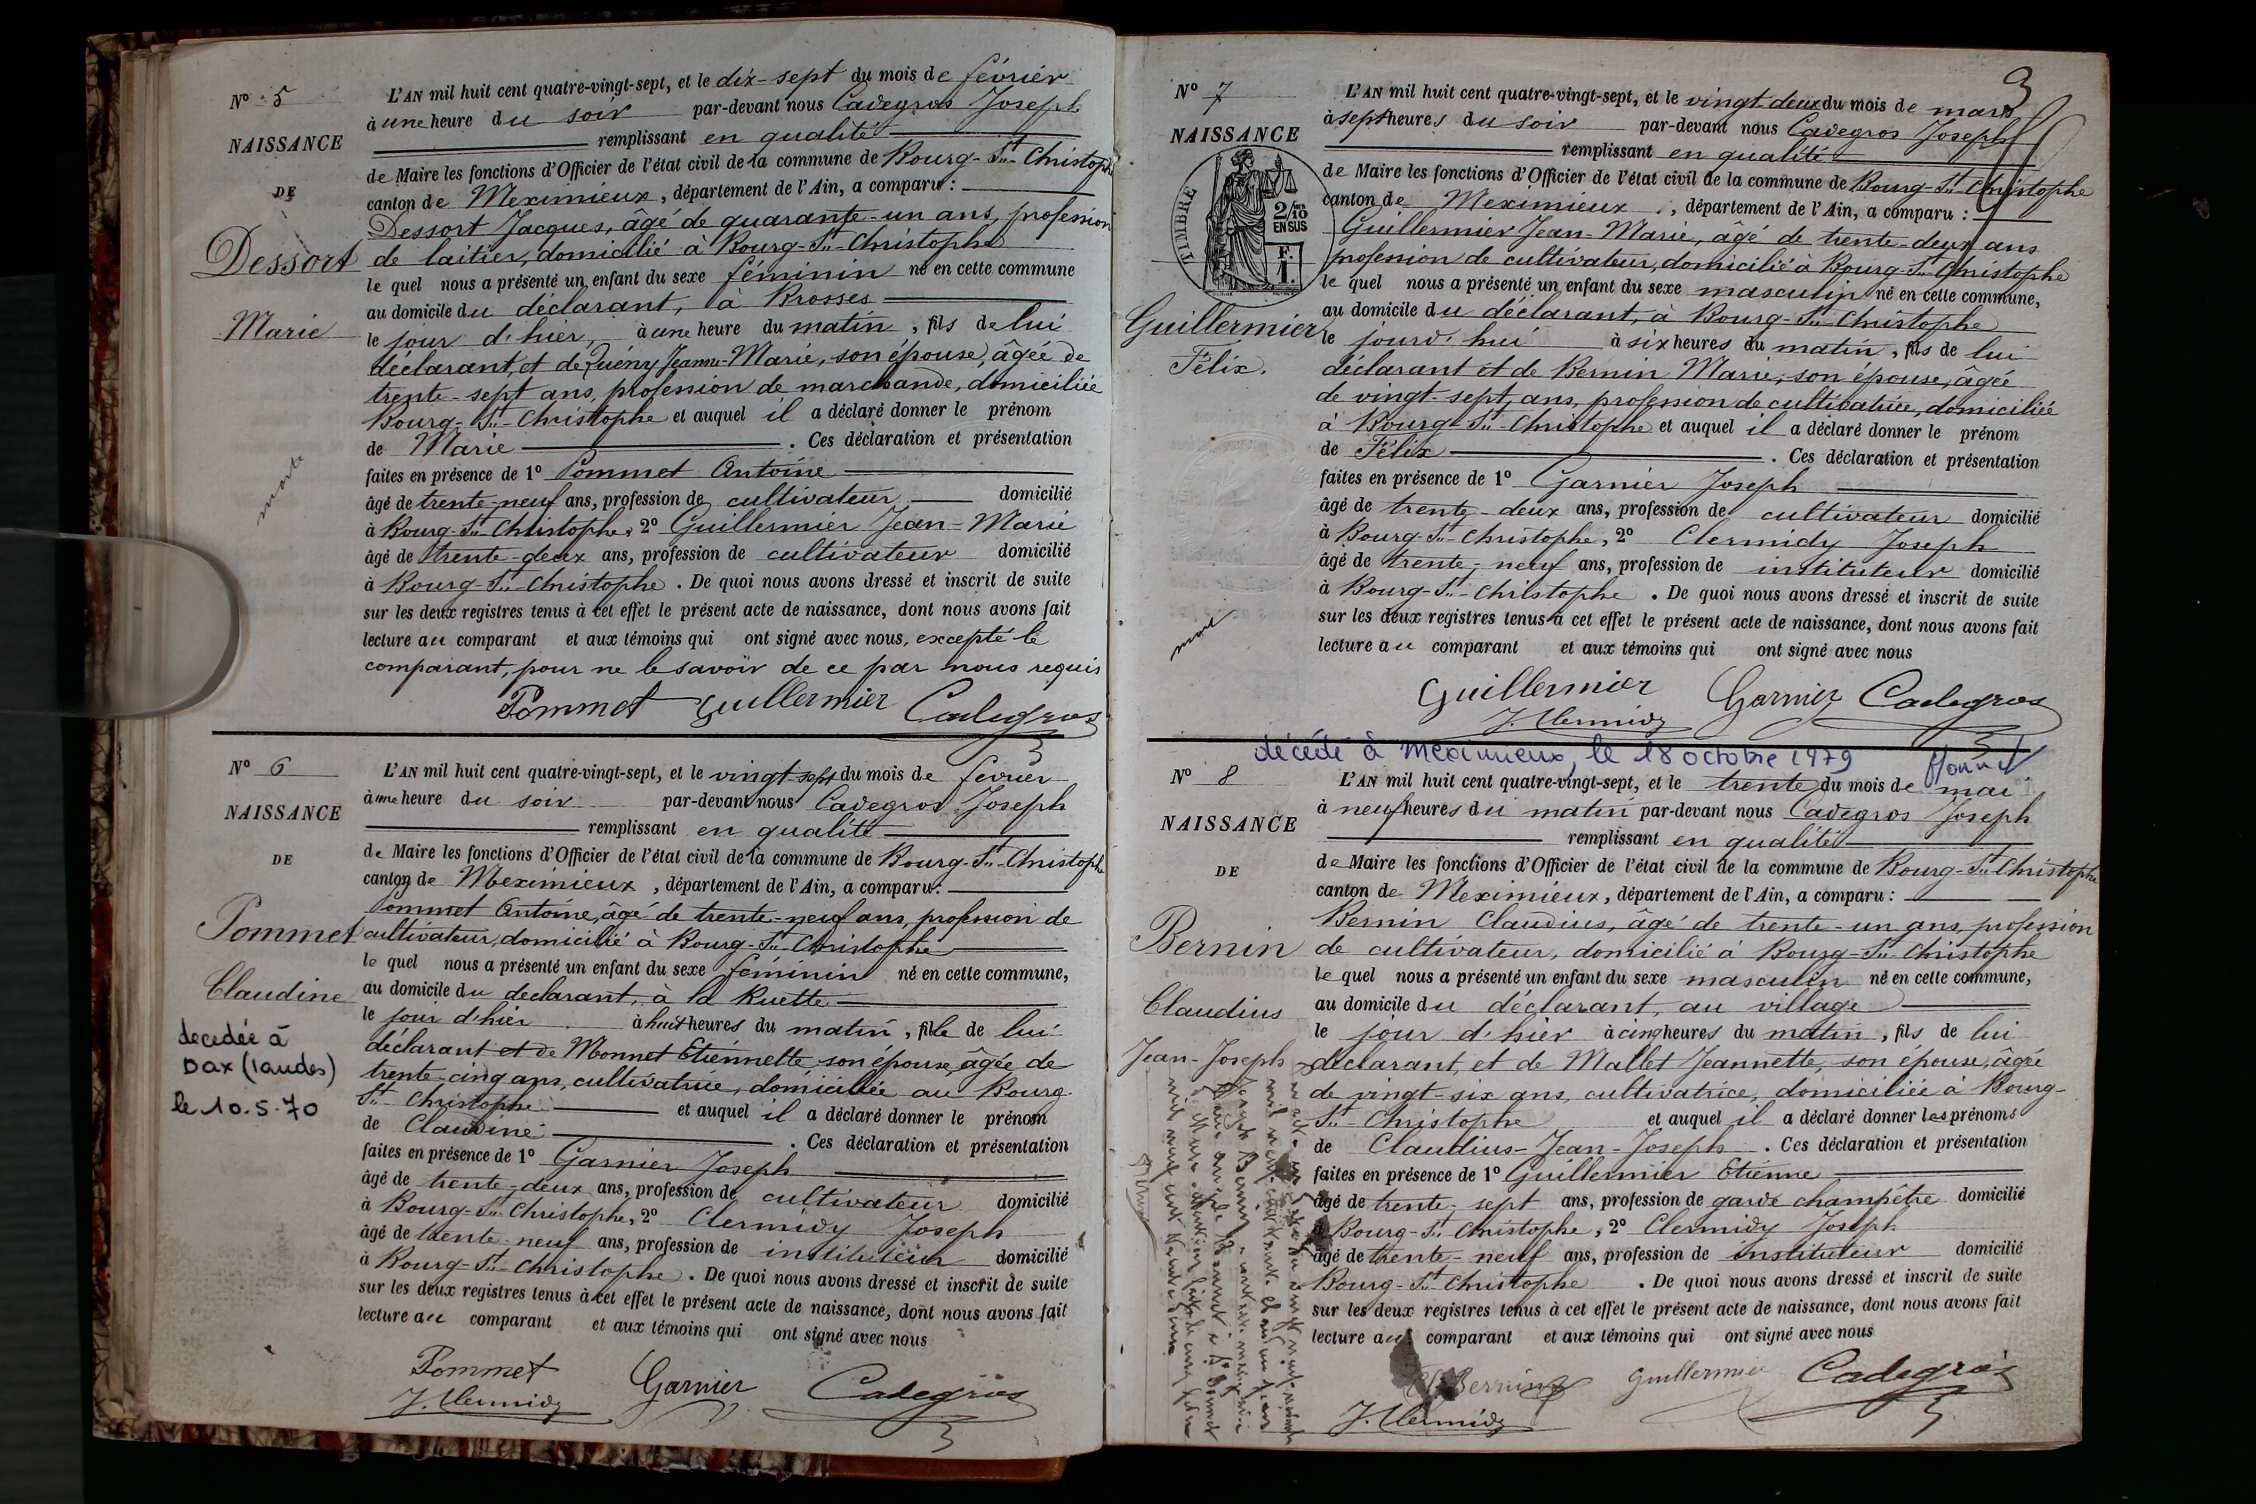 N° 5
NAISSANCE
DE
Dessort
Marie
morte
L'AN mil huit cent quatre-vingt-sept, et le dix-sept du mois de février
à une heure du soir par-devant nous Cadegros Joseph
remplissant en qualité
de Maire les fonctions d'Officier de l'état civil de la commune de Bourg-St-Christophe
canton de Meximieux, département de l'Ain, a comparu :
Dessort Jacques, âgé de quarante-un ans, profession
de laitier, domicilié à Bourg-St-Christophe
le quel nous a présenté un enfant du sexe féminin né en cette commune
au domicile du déclarant, à Brosses
le jour d'hier, à une heure du matin, fils de lui
déclarant, et de Jeanne-Marie, son épouse, âgée de
trente-sept ans, profession de marchande, domiciliée
Bourg-St-Christophe et auquel il a déclaré donner le prénom
de Marie. Ces déclaration et présentation
faites en présence de 1° Pommet Antoine
âgé de trente-neuf ans, profession de cultivateur domicilié
à Bourg-St-Christophe, 2° Guillermier Jean-Marie
âgé de trente-deux ans, profession de cultivateur domicilié
à Bourg-St-Christophe. De quoi nous avons dressé et inscrit de suite
sur les deux registres tenus à cet effet le présent acte de naissance, dont nous avons fait
lecture au comparant et aux témoins qui ont signé avec nous, excepté le
comparant, pour ne le savoir de ce par nous requis
Pommet Guillermier Cadegros
N° 6
NAISSANCE
DE
Pommet
Claudine
decedée à
Dax (landes)
le 10.5.70
L'AN mil huit cent quatre-vingt-sept, et le vingt sept du mois de fevrier
à une heure du soir par-devant nous Cadegros Joseph
remplissant en qualité
de Maire les fonctions d'Officier de l'état civil de la commune de Bourg-St-Christophe
canton de Meximieux, département de l'Ain, a comparu :
Pommet Antoine, âgé de trente-neuf ans, profession de
cultivateur, domicilié à Bourg-St-Christophe
le quel nous a présenté un enfant du sexe féminin né en cette commune,
au domicile du declarant, à la Ruette
le jour d'hier à huit heures du matin, fille de lui
déclarant et de Monnet Etiennette, son épouse, âgée de
trente-cinq ans, cultivatrice, domiciliée au Bourg-
St-Christophe et auquel il a déclaré donner le prénom
de Claudine. Ces déclaration et présentation
faites en présence de 1° Garnier Joseph
âgé de trente-deux ans, profession de cultivateur domicilié
à Bourg-St-Christophe, 2° Clermidy Joseph
âgé de trente-neuf ans, profession de instituteur domicilié
à Bourg-St-Christophe. De quoi nous avons dressé et inscrit de suite
sur les deux registres tenus à cet effet le présent acte de naissance, dont nous avons fait
lecture au comparant et aux témoins qui ont signé avec nous
Pommet Garnier Cadegros
J. Clermidy
3
N° 7
NAISSANCE
TIMBRE
2/10 EN SUS
F. 1.
Guillermier
Félix.
mort
L'AN mil huit cent quatre-vingt-sept, et le vingt-deux du mois de mars
à sept heures du soir par-devant nous Cadegros Joseph
remplissant en qualité
de Maire les fonctions d'Officier de l'état civil de la commune de Bourg-St-Christophe
canton de Meximieux, département de l'Ain, a comparu :
Guillermier Jean-Marie, âgé de trente-deux ans
profession de cultivateur, domicilié à Bourg-St-Christophe
le quel nous a présenté un enfant du sexe masculin né en cette commune,
au domicile du déclarant, à Bourg-St-Christophe
le jourd'hui à six heures du matin, fils de lui
déclarant et de Bernin Marie, son épouse, âgée
de vingt-sept ans, profession de cultivatrice, domiciliée
à Bourg-St-Christophe et auquel il a déclaré donner le prénom
de Félix. Ces déclaration et présentation
faites en présence de 1° Garnier Joseph
âgé de trente-deux ans, profession de cultivateur domicilié
à Bourg-St-Christophe, 2° Clermidy Joseph
âgé de trente-neuf ans, profession de instituteur domicilié
à Bourg-St-Christophe. De quoi nous avons dressé et inscrit de suite
sur les deux registres tenus à cet effet le présent acte de naissance, dont nous avons fait
lecture au comparant et aux témoins qui ont signé avec nous
Guillermier Garnier Cadegros
J. Clermidy
décédé à Meximieux, le 18 octobre 1979
N° 8
NAISSANCE
DE
Bernin
Claudius
Jean-Joseph
L'AN mil huit cent quatre-vingt-sept, et le trente du mois de mai
à neuf heures du matin par-devant nous Cadegros Joseph
remplissant en qualité
de Maire les fonctions d'Officier de l'état civil de la commune de Bourg-St-Christophe
canton de Meximieux, département de l'Ain, a comparu :
Bernin Claudius, âgé de trente-un ans, profession
de cultivateur, domicilié à Bourg-St-Christophe
le quel nous a présenté un enfant du sexe masculin né en cette commune,
au domicile du déclarant, au village
le jour d'hier à cinq heures du matin, fils de lui
déclarant, et de Mallet Jeannette, son épouse, âgée
de vingt-six ans, cultivatrice, domiciliée à Bourg-
St-Christophe et auquel il a déclaré donner les prénoms
de Claudius-Jean-Joseph. Ces déclaration et présentation
faites en présence de 1° Guillermier Etienne
âgé de trente-sept ans, profession de garde champêtre domicilié
à Bourg-St-Christophe, 2° Clermidy Joseph
âgé de trente-neuf ans, profession de instituteur domicilié
Bourg-St-Christophe. De quoi nous avons dressé et inscrit de suite
sur les deux registres tenus à cet effet le présent acte de naissance, dont nous avons fait
lecture au comparant et aux témoins qui ont signé avec nous
Bernin Guillermier Cadegros
J. Clermidy